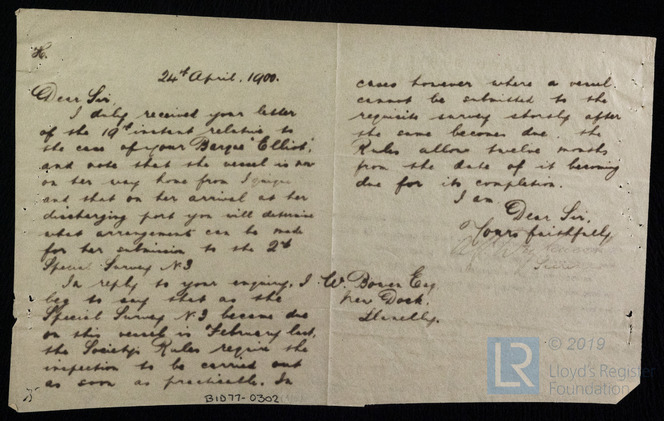 K.
24th April. 1900.
Dear Sir,
I duly received your letter
of the 19th instant relative to
the case of your Barque "Elliot",
and note that the vessel is now
on her way home from Iquique
and that on her arrival at her
discharging port you will determine
what arrangements can be made
for her submission to the 2nd
Special Survey No 3
In reply to your enquiry, I
beg to say that as the
Special Survey No 3 became due
on this vessel in February last,
the Society's Rules require the
inspection to be carried out
as soon as practicable. In
cases however where a vessel
cannot be submitted to the
requisite survey shortly after
the same becomes due, the
Rules allow twelve months
from the date of it becoming
due for its completion.
I am
Dear Sir,
Yours faithfully
W. Bowen Esq
New Dock.
Llanelly.
BID77-0302
© 2019
LR
Lloyd's Register
Foundation